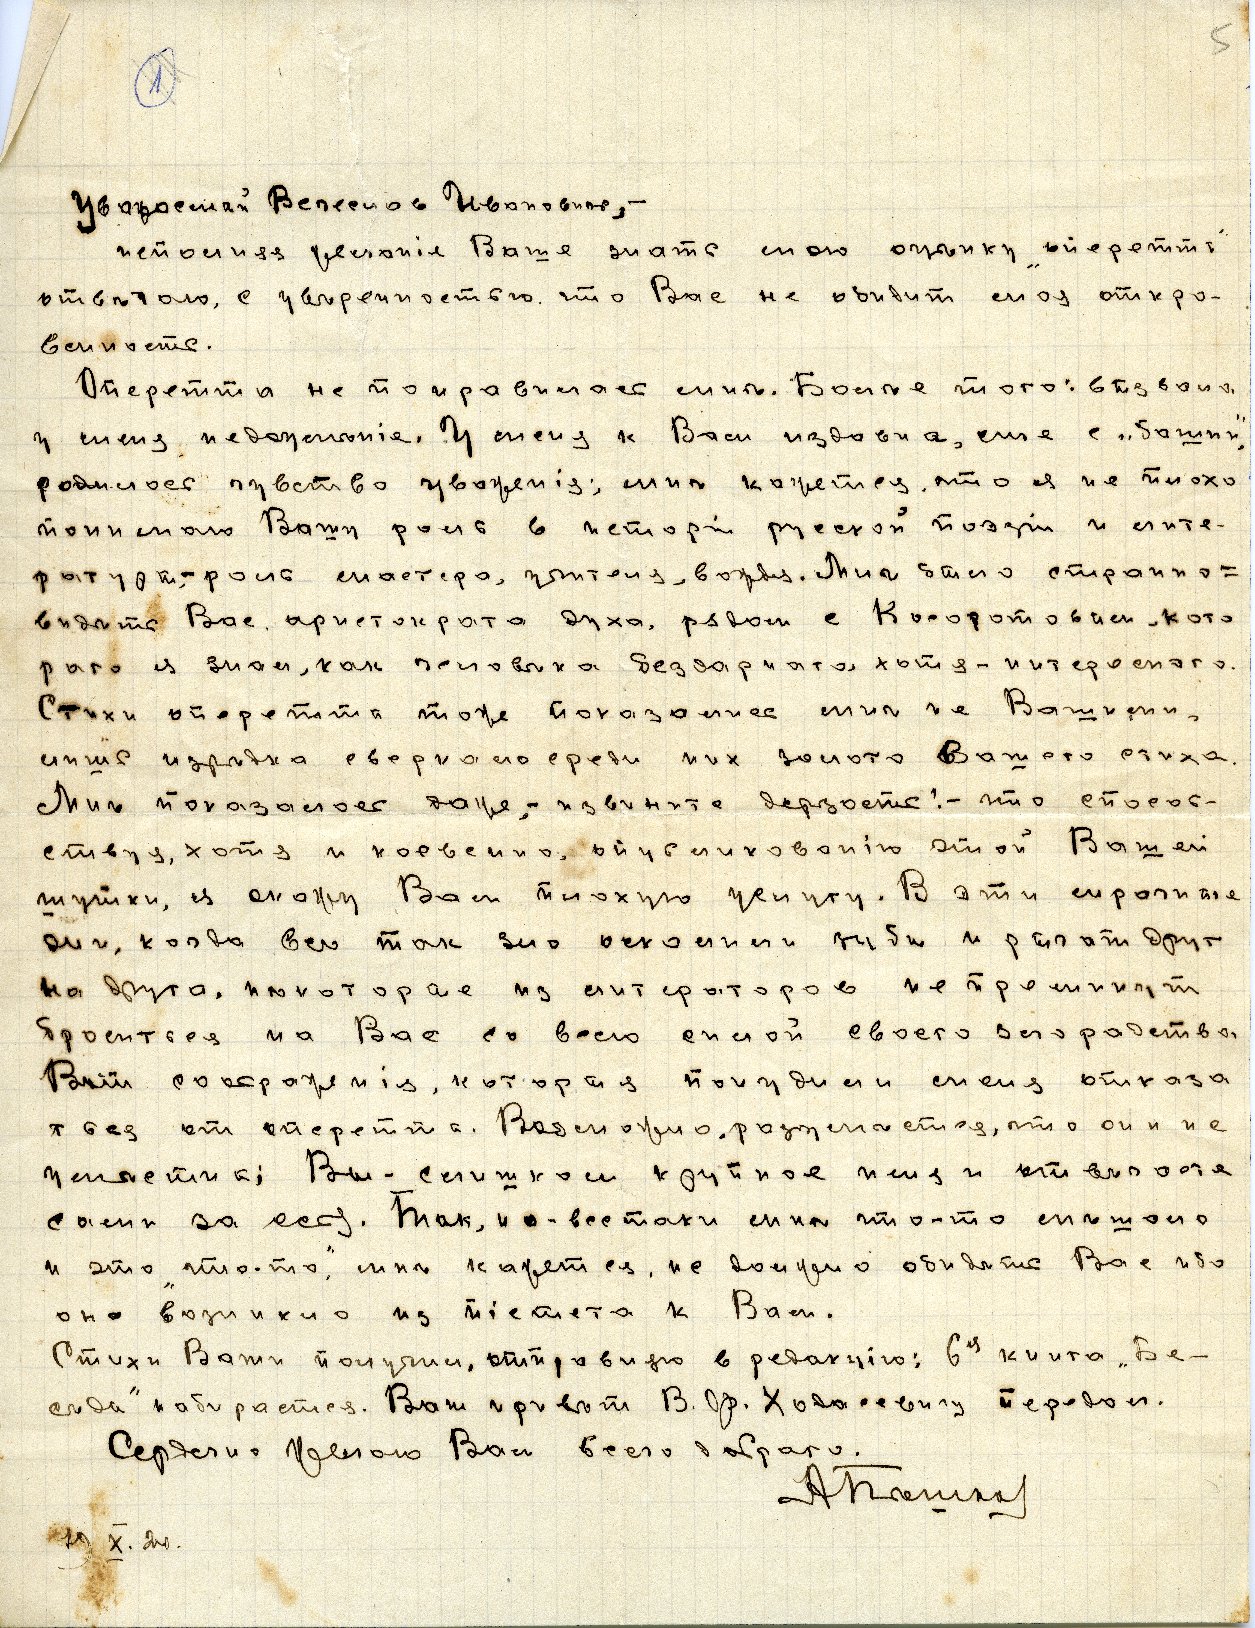 5
1
Уважаемый Вячеслав Иванович,-
исполняя желанiе Ваше знать мою оценку „оперетты"
отвечаю, с уверенностью, что Вас не обидит моя откро-
венность.
Оперетта не понравилась мне. Более того: вызвала
у меня недоумение. У меня к Вам издавна, еще с „башни",
родилось чувство уваженiя; мне кажется, что я не плохо
понимаю Вашу роль в исторiи русской поэзiи и лите-
ратуры,- роль мастера, учителя, вождя. Мне было странно=
видеть Вас, аристократа духа, рядом с
рого я знал, как человека бездарнаго, хотя - интереснаго.
Стихи оперетты тоже показались мне не Вашими,
лишь изредка сверкало среди них золото Вашего стиха.
Мне показалось даже,- извините дерзость!- что способ-
ствуя, хотя и косвенно, опубликованiю этой Вашей
шутки, я окажу Вам плохую услугу. В эти мрачные
дни, когда все так зло оскалили зубы и рычат друг
на друга, некоторые из литераторов не преминут
броситься на Вас со всею силой своего злорадства.
Вот соображенiя, которыя понудили меня отказа
ться от оперетты. Возможно, разумеется, что они не
уместны; Вы - слишком крупное имя и отвечаете
сами за себя. Так, но - всетаки мне что-то мешало
и это „что-то", мне кажется, не должно обидеть Вас ибо
оно возникло из пiетета к Вам.
Стихи Ваши получил, отправляю в редакцiю; 6ая книга „Бе-
седы" набирается. Ваш привет В. Ф. Ходасевичу передал.
Сердечно желаю Вам всего доброго.
А Пешков
X. 24.